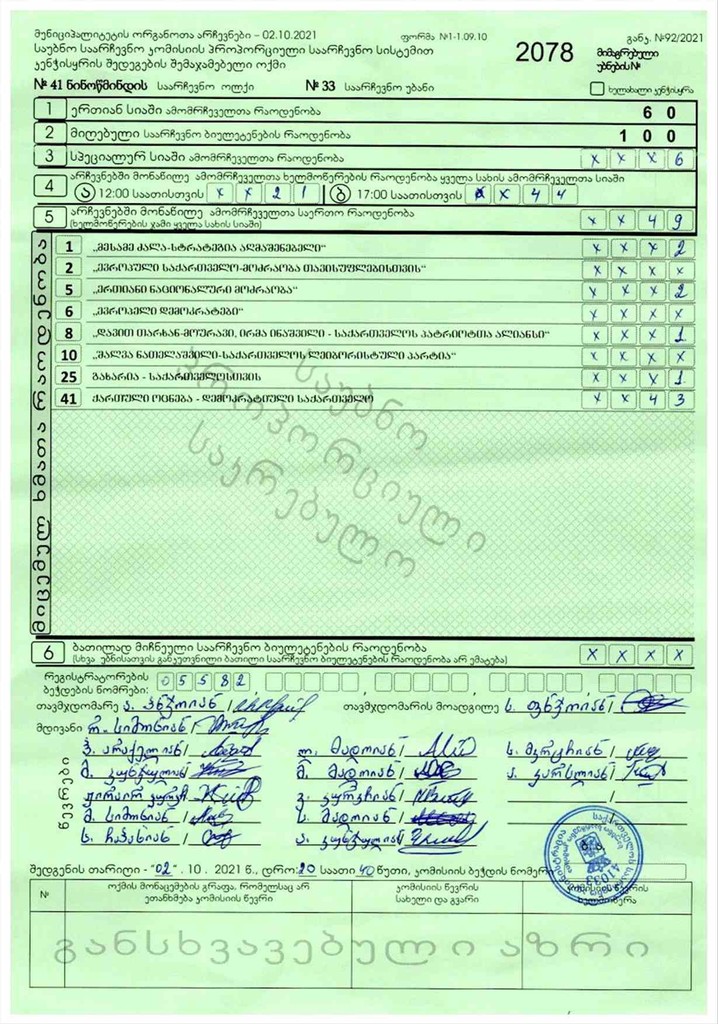 მუნიციპალიტეტის ორგანოთა არჩევნები – 02.10.2021 ფორმა №1-1.09.10 განკ. №92/2021
საუბნო საარჩევნო კომისიის პროპორციული საარჩევნო სისტემით 2078 მიმაგრებული
კენჭისყრის შედეგების შემაჯამებელი ოქმი უბნების №
№ 41 ნინოწმინდის საარჩევნო ოლქი № 33 საარჩევნო უბანი ხელახალი კენჭისყრა
1 ერთიან სიაში ამომრჩეველთა რაოდენობა 6 0
2 მიღებული საარჩევნო ბიულეტენების რაოდენობა 1 0 0
3 სპეციალურ სიაში ამომრჩეველთა რაოდენობა x x x 6
4 არჩევნებში მონაწილე ამომრჩეველთა ხელმოწერების რაოდენობა ყველა სახის ამომრჩეველთა სიაში
ა 12:00 საათისთვის x x 2 1 ბ 17:00 საათისთვის x x 4 4
5 არჩევნებში მონაწილე ამომრჩეველთა საერთო რაოდენობა x x 4 9
(ხელმოწერების ჯამი ყველა სახის სიაში)
მიცემულ ხმათა რაოდენობა
1 „მესამე ძალა-სტრატეგია აღმაშენებელი“ x x x 2
2 „ევროპული საქართველო-მოძრაობა თავისუფლებისთვის“ x x x x
5 „ერთიანი ნაციონალური მოძრაობა“ x x x 2
6 „ევროპელი დემოკრატები“ x x x x
8 „დავით თარხან-მოურავი, ირმა ინაშვილი - საქართველოს პატრიოტთა ალიანსი“ x x x 1
10 „შალვა ნათელაშვილი-საქართველოს ლეიბორისტული პარტია“ x x x x
25 გახარია - საქართველოსთვის x x x 1
41 ქართული ოცნება - დემოკრატიული საქართველო x x 4 3
საუბნო
პროპორციული
საკრებულო
6 ბათილად მიჩნეული საარჩევნო ბიულეტენების რაოდენობა x x x x
(სხვა უბნისათვის განკუთვნილი ბათილი საარჩევნო ბიულეტენების რაოდენობა არ ემატება)
რეგისტრატორების
ბეჭდების ნომრები: 0 5 5 8 2 , , ,
თავმჯდომარე / თავმჯდომარის მოადგილე ს. /
მდივანი რ. სიმონიან /
წევრები
პ. არაქელიან / ლ. მადოიან / ს. /
მ. / მ. მადოიან / ა. /
/ /
მ. სიმონიან / ს. მადოიან /
ს. / ა. /
შედგენის თარიღი - "02" . 10 . 2021 წ., დრო: 20 საათი 40 წუთი, კომისიის ბეჭდის ნომერი
ბ.ა.
41033
№ ოქმის მონაცემების გრაფა, რომელსაც არ ეთანხმება კომისიის წევრი კომისიის წევრის სახელი და გვარი კომისიის წევრის ხელმოწერა
განსხვავებული აზრი